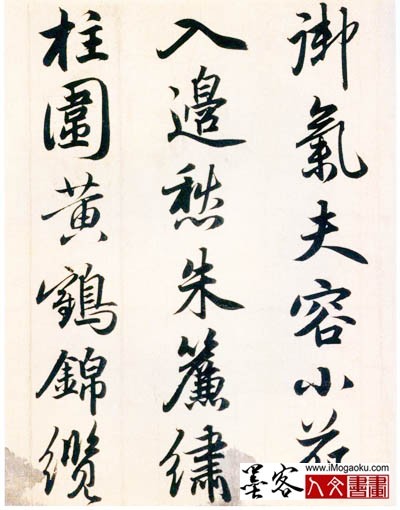 御氣夫容小苑
入邊愁朱簾繡
柱圍黃鶴錦纜
墨客
www.iMogaoku.com
人文書畫